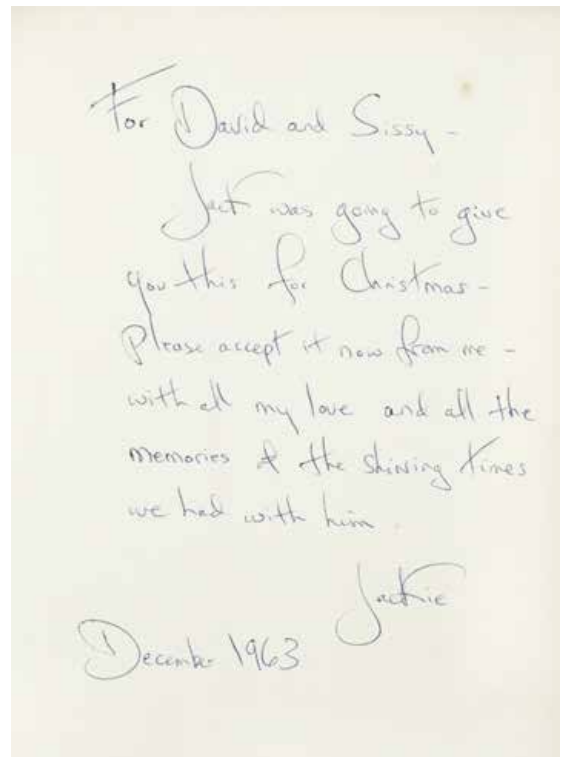 For David and Sissy -
Jack was going to give
you this for Christmas -
Please accept it now from me -
with all my love and all the
memories of the shining times
we had with him.
Jackie
December 1963